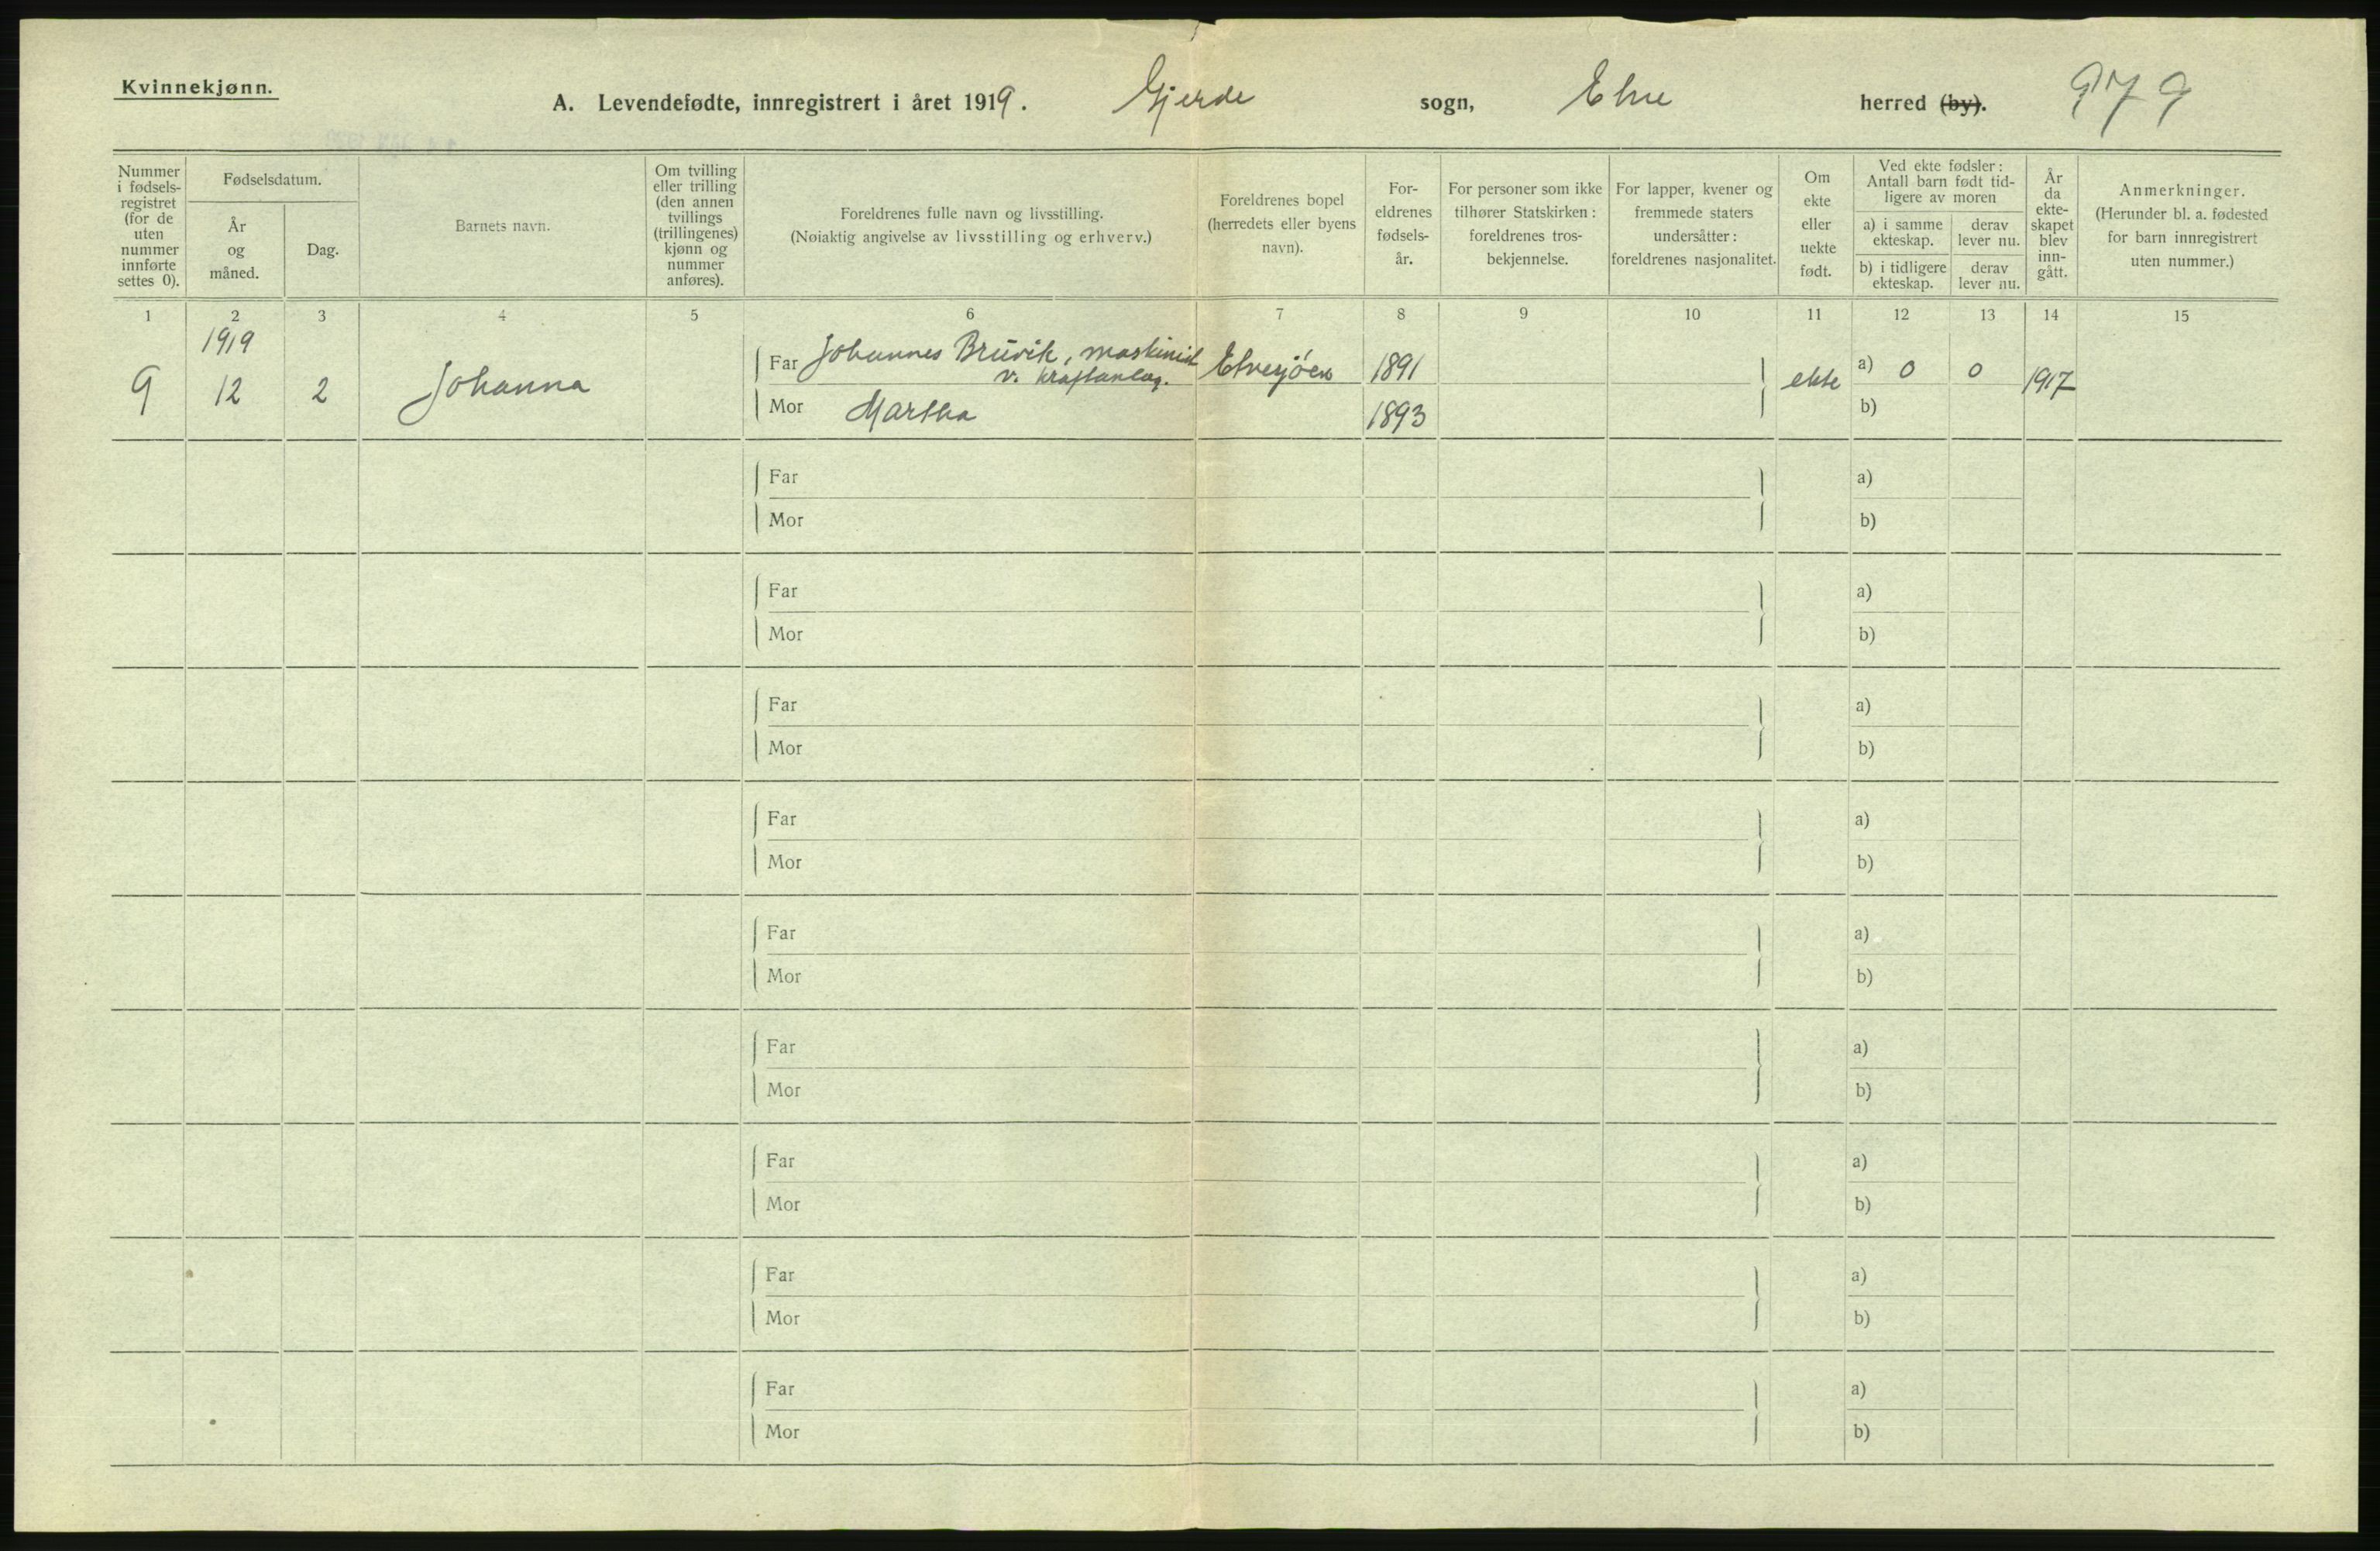 Kvinnekjønn.
A. Levendefødte, innregistrert i året 1919. Gjerde sogn, Etne herred (by). 979
Nummer i fødsels- registret (for de uten nummer innførte settes 0).
Fødselsdatum.
År og måned.
Dag.
Barnets navn.
Om tvilling eller trilling (den annen tvillings (trillingenes) kjønn og nummer anføres).
Foreldrenes fulle navn og livsstilling.
(Nøiaktig angivelse av livsstilling og erhverv.)
Foreldrenes bopel (herredets eller byens navn).
For- eldrenes fødsels- år.
For personer som ikke tilhører Statskirken: foreldrenes tros- bekjennelse.
For lapper, kvener og fremmede staters undersåtter: foreldrenes nasjonalitet.
Om ekte eller uekte født.
Ved ekte fødsler: Antall barn født tid- ligere av moren
a) i samme ekteskap.
derav lever nu.
b) i tidligere ekteskap.
derav lever nu.
År da ekte- skapet blev inn- gått.
Anmerkninger.
(Herunder bl. a. fødested for barn innregistrert uten nummer.)
1 2 3 4 5 6 7 8 9 10 11 12 13 14 15
1919
9 12 2 Johanna Far Johannes Bruvik, maskinist v. kraftanlæg. Etnesjøen 1891 ekte a) 0 0 1917
Mor Martha 1893 b)
Far a)
Mor b)
Far a)
Mor b)
Far a)
Mor b)
Far a)
Mor b)
Far a)
Mor b)
Far a)
Mor b)
Far a)
Mor b)
Far a)
Mor b)
Far a)
Mor b)